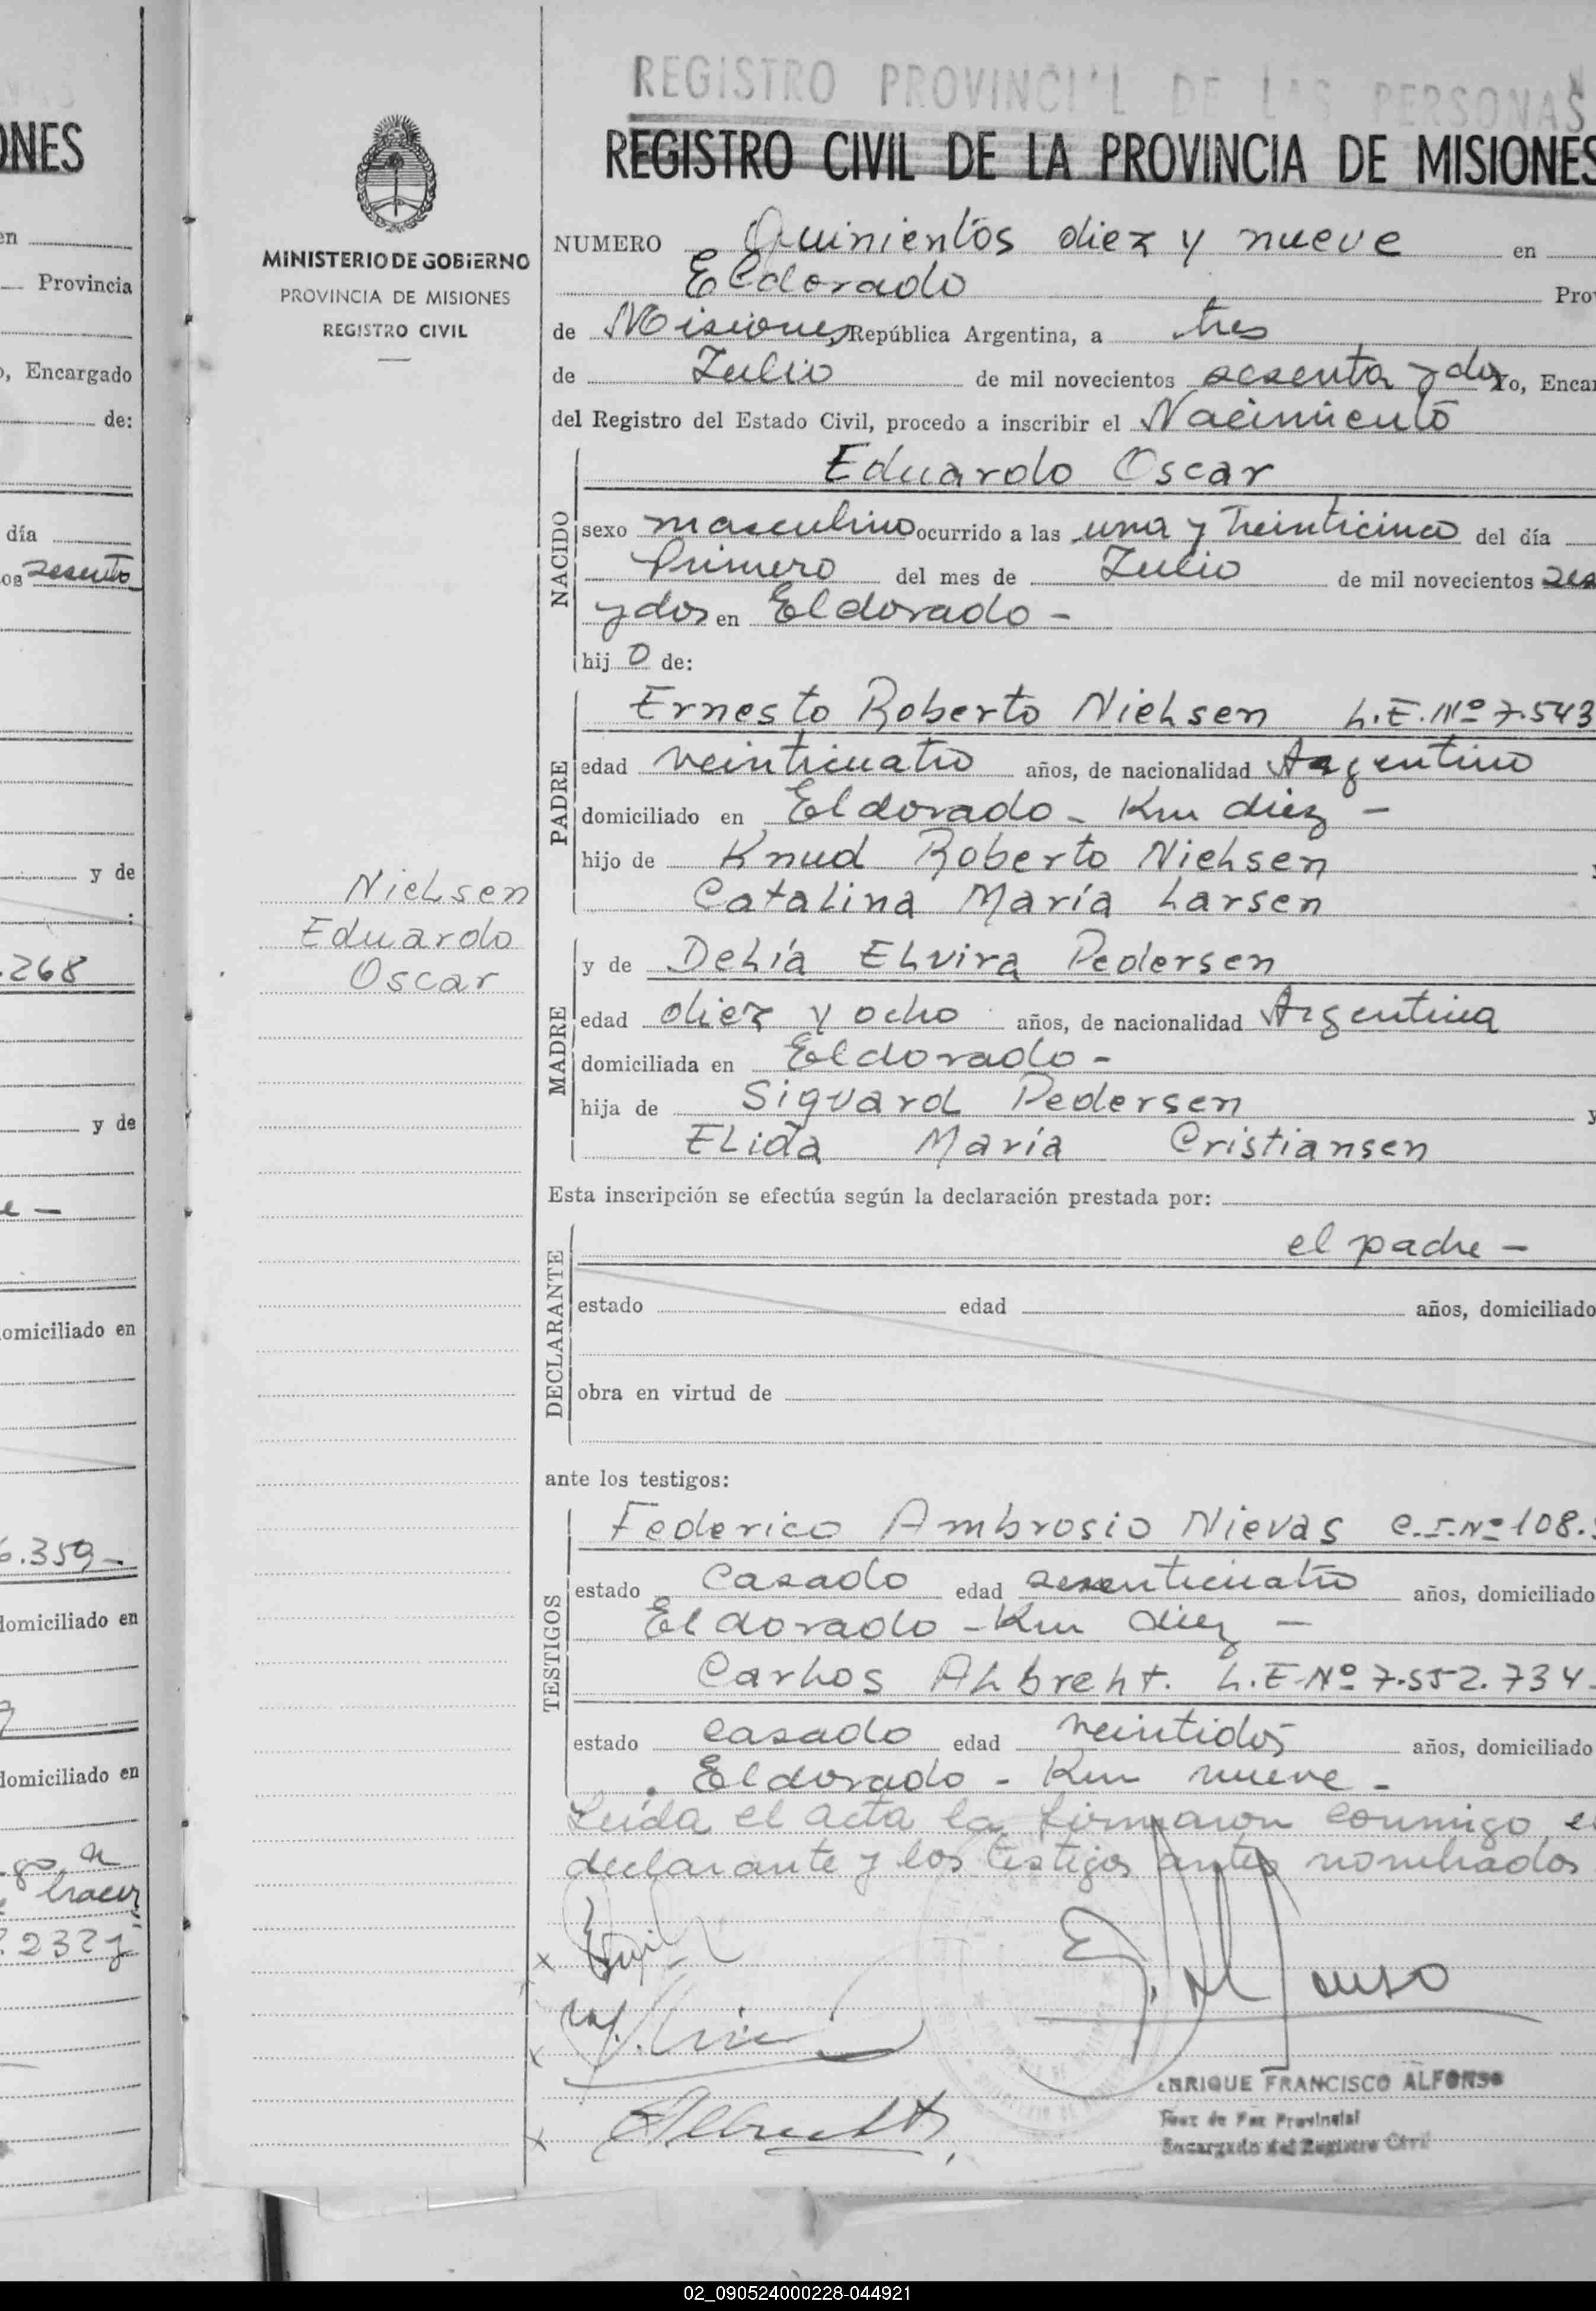 REGISTRO PROVINCI'L DE LAS PERSONAS
REGISTRO CIVIL DE LA PROVINCIA DE MISIONES
MINISTERIO DE GOBIERNO
PROVINCIA DE MISIONES
REGISTRO CIVIL
NUMERO Quinientos diez y nueve en
Eldorado Pro
de Misiones, República Argentina, a tres
de Julio de mil novecientos sesenta y dos Yo, Encar
del Registro del Estado Civil, procedo a inscribir el Nacimiento
NACIDO
Eduardo Oscar
sexo masculino ocurrido a las una y treinticinco del día
Primero del mes de Julio de mil novecientos ses
y dos en Eldorado -
hij o de:
PADRE
Ernesto Roberto Nielsen L.E. Nº 7.543
edad veinticuatro años, de nacionalidad Argentino
domiciliado en Eldorado - Km diez -
hijo de Knud Roberto Nielsen
Catalina María Larsen
Nielsen
Eduardo
Oscar
MADRE
y de Delía Elvira Pedersen
edad diez y ocho años, de nacionalidad Argentina
domiciliada en Eldorado -
hija de Sigvard Pedersen y
Elida María Cristiansen
Esta inscripción se efectúa según la declaración prestada por:
DECLARANTE
el padre -
estado edad años, domiciliado
obra en virtud de
ante los testigos:
TESTIGOS
Federico Ambrosio Nievas C.I. Nº 108.
estado Casado edad sesenticuatro años, domiciliado
Eldorado - Km diez -
Carlos Albreht. L.E Nº 7.552.734-
estado casado edad veintidós años, domiciliado
Eldorado - Km nueve -
Leída el acta la firmaron conmigo, el
declarante y los testigos antes nombrados
ENRIQUE FRANCISCO ALFONSO
Juez de Paz Provincial
Encargado del Registro Civil
ONES
en
Provincia
o, Encargado
de:
día
os sesenta
y de
.268
y de
omiciliado en
6.359-
domiciliado en
domiciliado en
02_090524000228-044921